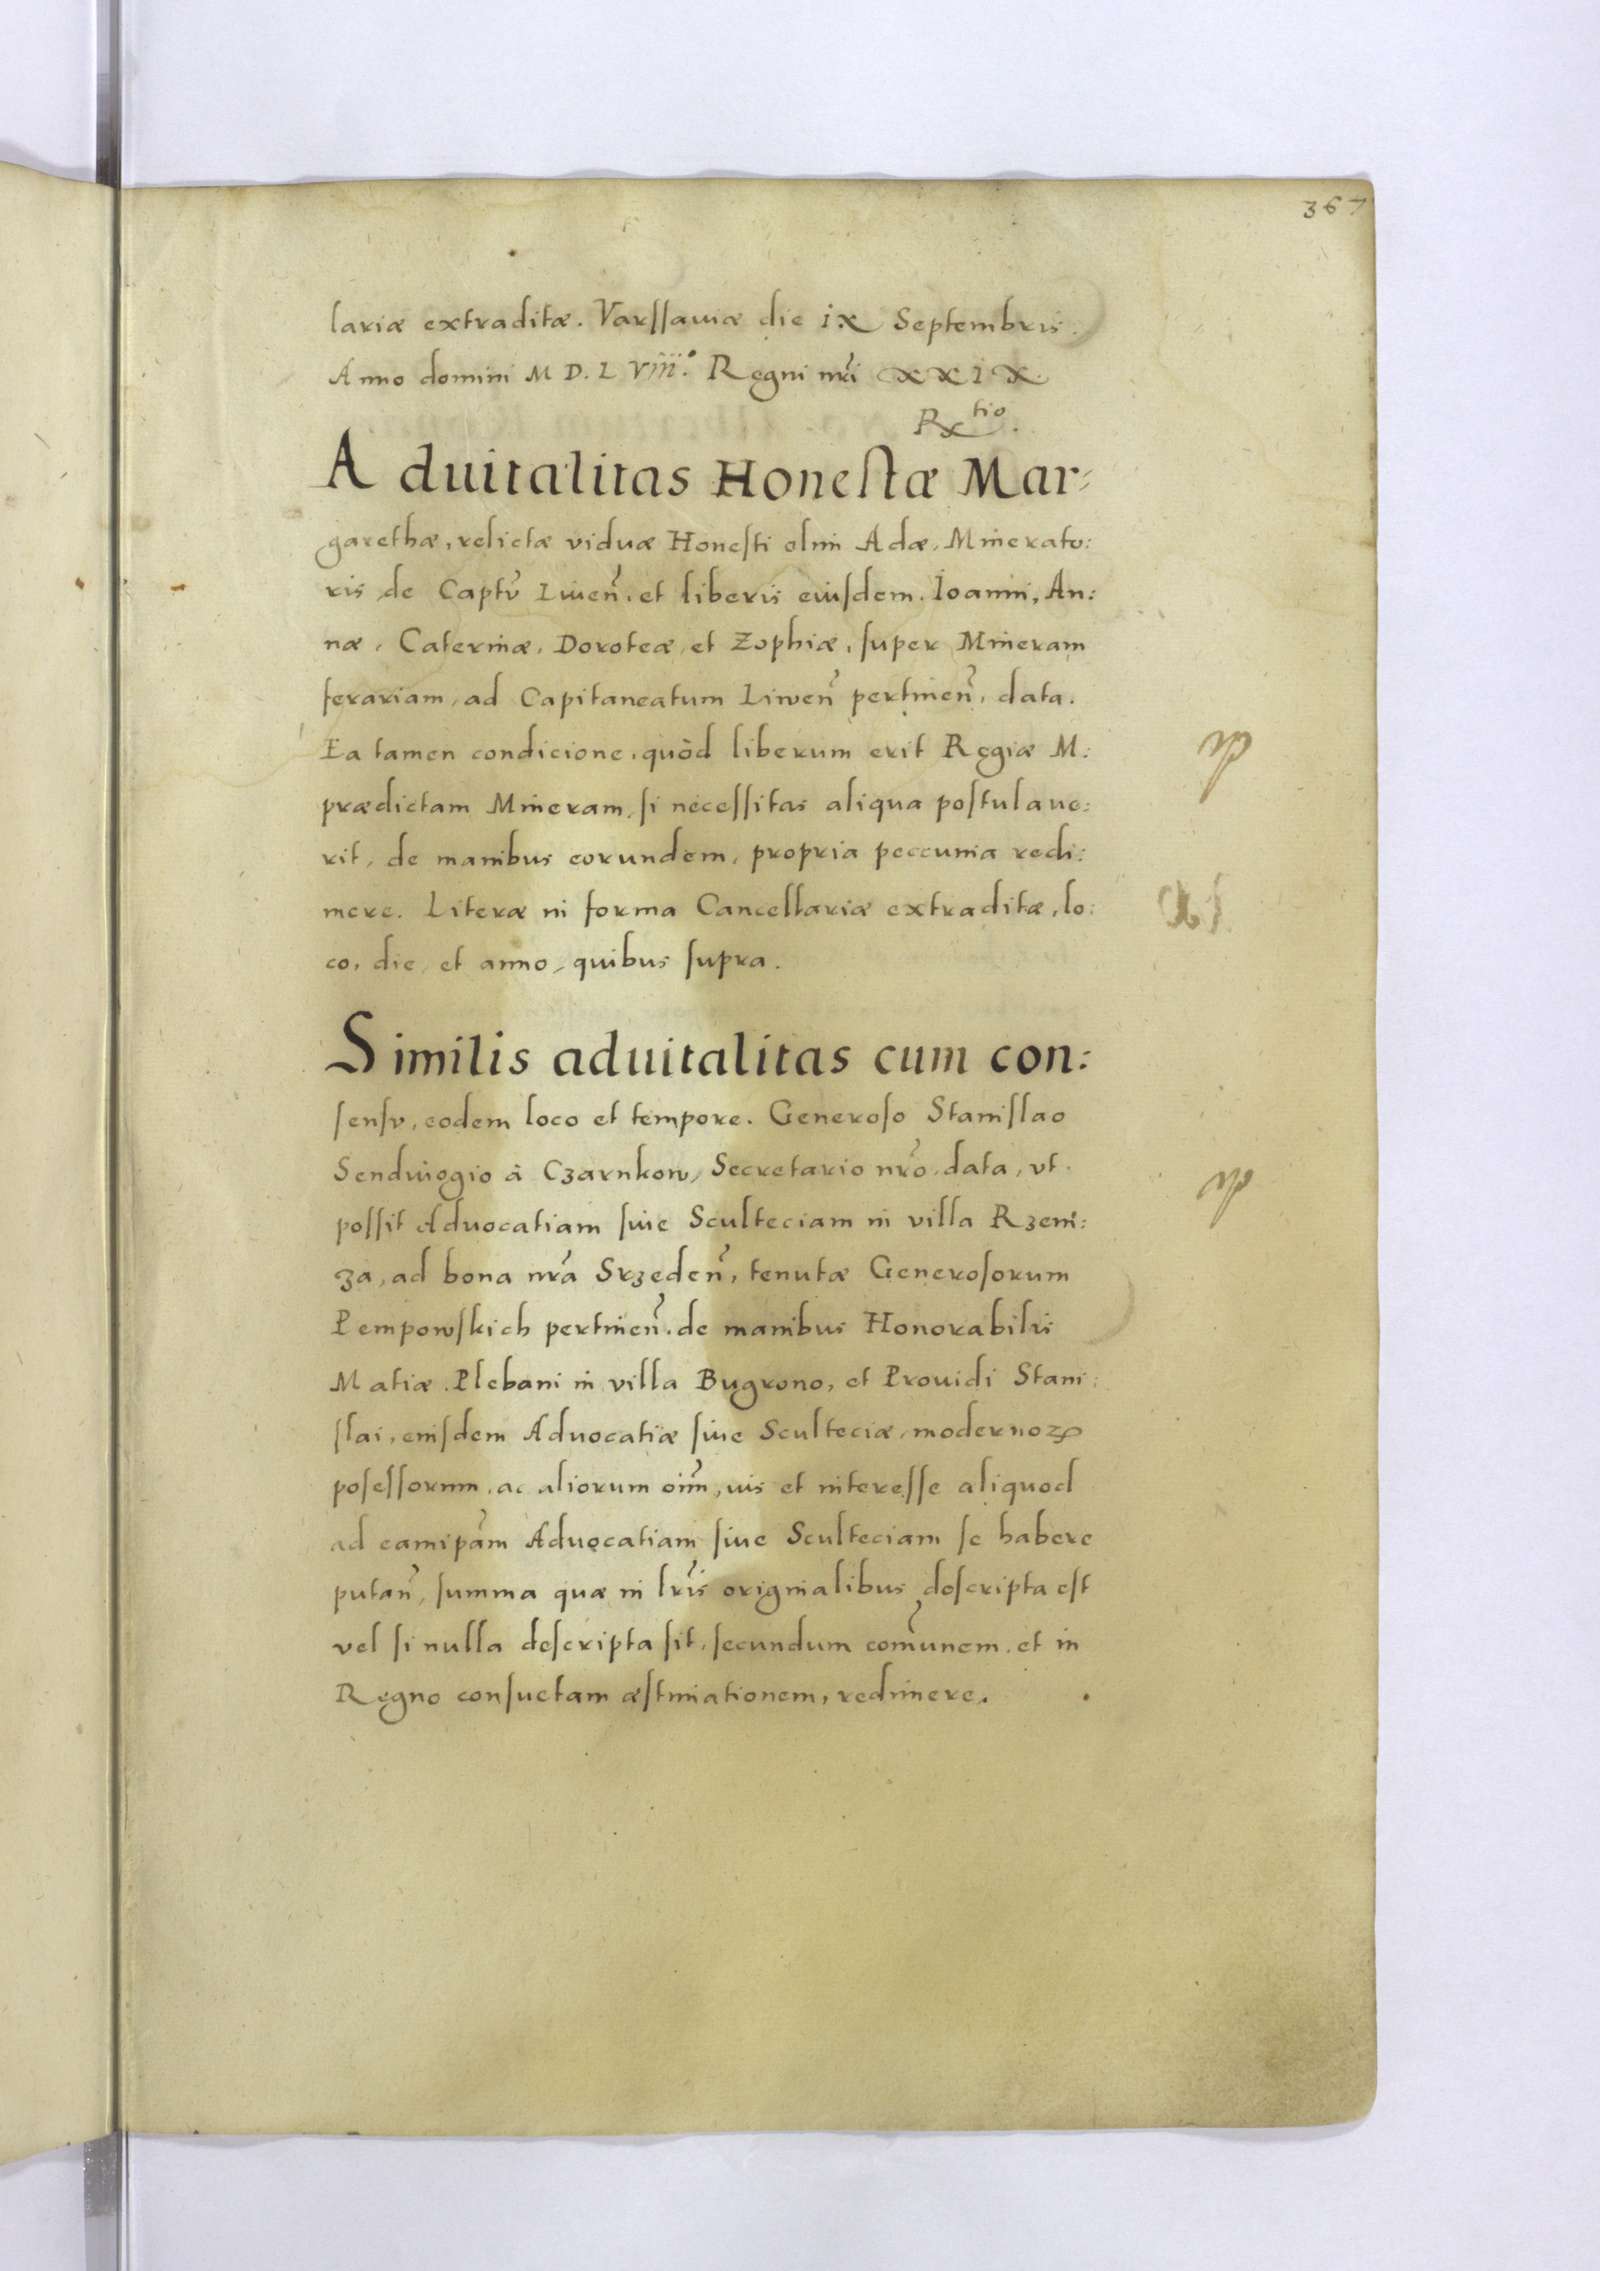 367
lariæ extraditæ. Varſſauiæ die ix Septembris.
Anno domini M D. L Viii.° Regni nr̃i XXIX
Rtio.
Aduitalitas Honeſtæ Mar:
garethæ, relictæ viduæ Honeſti olim Adæ, Minerato:
ris de Captũ Liuen̄. et liberis eiuſdem. Ioanni, An:
næ, Caterinæ, Doroteæ, et Zophiæ, ſuper Mineram
ferariam, ad Capitaneatum Liwen̄ pertinen̄, data.
Ea tamen condicione, quòd liberum erit Regiæ M:
prædictam Mineram, ſi neceſſitas aliqua poſtulaue:
rit, de manibus eorundem, propria peccunia redi:
mere. Literæ in forma Cancellariæ extraditæ, lo:
co, die, et anno, quibus ſupra.
Similis aduitalitas cum con:
ſenſv, eodem loco et tempore. Generoſo Staniſlao
Sendiuogio à Czarnkow, Secretario nr̃o, data, vt
poſſit Aduocatiam ſiue Sculteciam in villa Rzemi:
za, ad bona nr̃a Srzeden̄, tenutæ Generoſorum
Pempowſkich pertinen̄. de manibus Honorabilis
Matiæ Plebani in villa Bugrono, et Prouidi Stani:
ſlai, eiuſdem Aduocatiæ ſiue Sculteciæ, modernoꝝ
poſeſſorum, ac aliorum oim̄, ius et intereſſe aliquod
ad eamip̃am Aduocatiam ſiue Sculteciam ſe habere
putan̄, ſumma quæ in lr̃is originalibus deſcripta eſt
vel ſi nulla deſcripta ſit, ſecundum com̄unem, et in
Regno conſuetam æſtimationem, redimere.